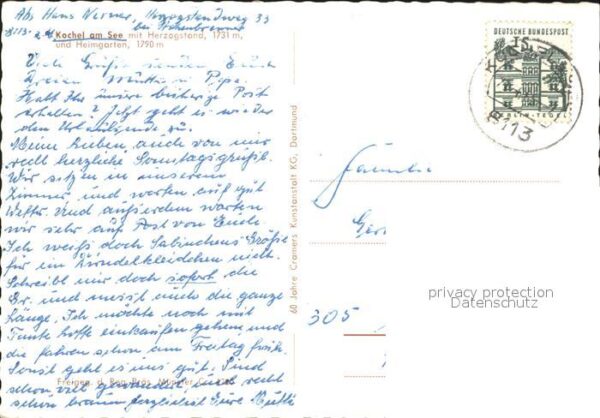 Abs. Hans Werner, Herzogstandweg 33
8113
bei
Kochel am See mit Herzogstand, 1731 m,
und Heimgarten, 1790 m
Viele Grüße senden Euch
Dreien Mutti u. Papa.
Habt Ihr unsere bisherige Post
erhalten? Jetzt geht es wieder
dem Urlaubsende zu.
Meine Lieben, auch von mir
recht herzliche Sonntagsgrüße.
Wir sitzen in unserem
Zimmer und warten auf gut
Wetter. Und außerdem warten
wir sehr auf Post von Euch.
Ich weiß doch Sabinchens Größe
für ein Dirndelkleidchen nicht.
Schreibt mir doch sofort die
Gr. und messt auch die ganze
Länge. Ich möchte noch mit
Tante einkaufen gehen, und
die fahren schon am Freitag früh.
Sonst geht es uns gut. Sind
schon viel gewandert und recht
schön braun. Herzlichst Eure Mutti
Freigeg. d. Reg. Präs. Münster
60 Jahre Cramers Kunstanstalt KG, Dortmund
DEUTSCHE BUNDESPOST
15
BERLIN-TEGEL
8113
Familie
305
privacy protection
Datenschutz